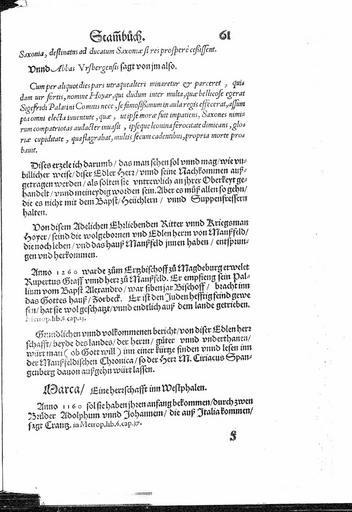 Stam̃bůch. 61
Saxonia, destinatus ad ducatum Saxoniæ si res prosperè cessissent.
Vnnd Abbas Vrspergensis sagt von jm also.
Cum per aliquot dies pars utraque alteri minaretur & parceret, quidam
uir fortis, nomine Hoyar, qui dudum inter multa, quæ bellicose egerat
Sigefridi Palatini Comitis nece, se famosissimum in aula regis effecerat, assumpta
omni electa iuuentute, quæ, utipse moræ fuit impatiens, Saxones nimis
rum conpatriotas audacter inuasit, ipseque leonina ferocitate dimicans, gloriæ
cupiditate, qua flagrabat, multis secum cadentibus, propria morte probauit.
Dises erzele ich darumb / das man sehen sol vnnd mag / wie vnbillicher
weise / diser Edler Herr / vnnd seine Nachkommen außgetragen
werden / als solten sie vntrewlich an jhrer Oberkeyt gehandelt
/ vnnd meineydig worden sein. Aber es můß allen so gehn /
die es nicht mit dem Bapst / Heüchlern / vnnd Suppenfressern
halten.
Von disem Adelichen Ehrliebenden Ritter vnnd Kriegsman
Hoyer / seind die wolgebornen vnd Edlen herrn von Manßfeld /
die noch leben / vnd das hauß Manßfeld jnnen haben / entsprungen
vnd herkommen.
Anno 1260 warde zům Ertzbischoff zů Magdeburg erwelet
Rupertus Graff vnnd herr zů Manßfeld. Er empfieng sein Pallium
vom Bapst Alexandro / war siben jar Bischoff / bracht inn
das Gottes hauß / Zorbeck. Er ist den Juden hefftig feind gewesen
/ hat sie wol geschatzt / vnnd endtlich auß dem lande getrieben.
Metrop. lib. 8. cap. 15.
Gründlichen vnnd volkommenen bericht / von diser Edlen herrschafft
/ beyde des landes / der herrn / güter vnnd vnderthanen /
würt man (ob Gott will) inn einer kürtze finden vnnd lesen inn
der Manßfeldischen Chronica / so der Herr M. Ciriacus Spangenberg
dauon außgehn würt lassen.
Marca / Eine herrschafft inn Westphalen.
Anno 1160 sol sie haben jhren anfang bekommen / durch zwen
Brüder Adolphum vnnd Johannem / die auß Italia kommen /
sagt Crantz. in Metrop. lib. 6. cap. 37.